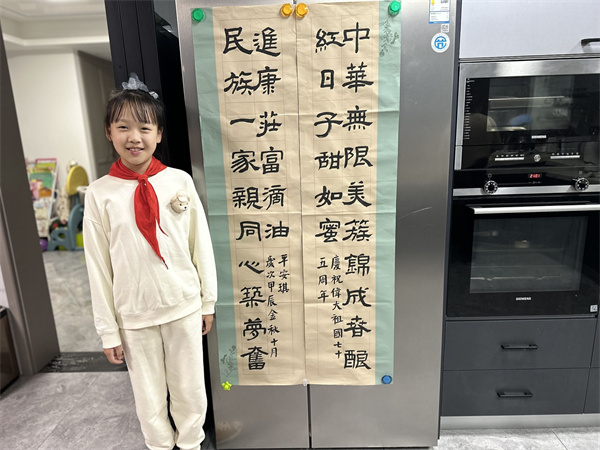 中華無限美簇錦成春
紅日子甜如蜜
慶祝偉大祖國七十
五周年
民族一家親同心築夢奮
進康莊富滴油
歲次甲辰金秋十月
平安琪
SIEMENS
SIEMENS